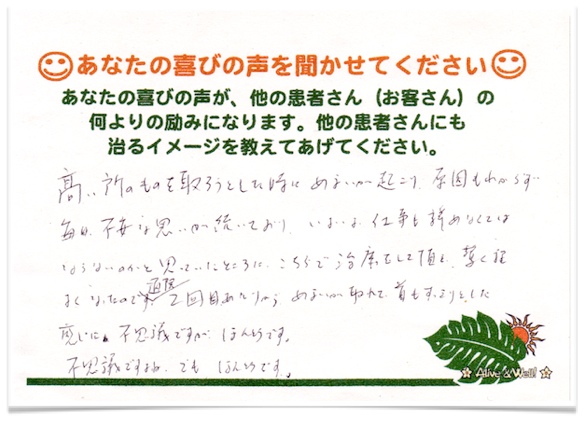 あなたの喜びの声を聞かせてください
あなたの喜びの声が、他の患者さん（お客さん）の
何よりの励みになります。他の患者さんにも
治るイメージを教えてあげてください。
高い所のものを取ろうとした時にめまいが起こり、原因もわからず
毎日、不安な思いが続いており、いよいよ仕事も辞めなくては
ならないのかと思っていたところに、こちらで治療をして頂き、驚く程
よくなったのです。
通院
2回目あたりから、めまいが取れて、首もすっきりとした
感じに。不思議ですが、ほんとうです。
不思議ですよね、でも ほんとうです。
☆ Alive & Well! ☆